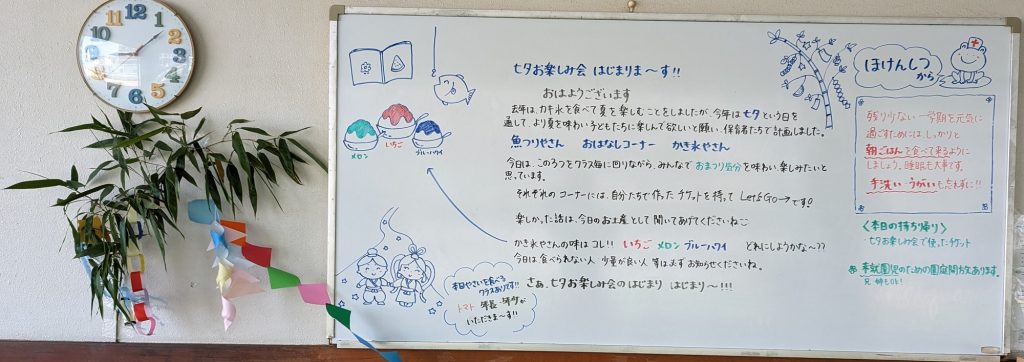 12
1
2
3
4
5
6
7
8
9
10
11
七夕お楽しみ会 はじまりま〜す!!
おはようございます
去年は、カキ氷を食べて夏を楽しむことをしましたが、今年は七夕という日を
通して、より夏を味わい子どもたちに楽しんで欲しいと願い、保育者たちで計画しました。
魚つりやさん おはなしコーナー かき氷やさん
今日は、この3つをクラス毎に回りながら、みんなでおまつり気分を味わい楽しみたいと
思っています。
それぞれのコーナーには、自分たちで作ったチケットを持って Let's Go→です!
楽しかった話は、今日のお土産として聞いてあげてくださいね
かき氷やさんの味はコレ!! いちご メロン ブルーハワイ どれにしようかな〜??
今日は食べられない人 少量が良い人 等は必ずお知らせくださいね。
さぁ、七夕お楽しみ会のはじまり はじまり〜!!!
メロン
いちご
ブルーハワイ
本日やさいを食べる
クラスありです!!
トマト 年長・年少が
いただきま〜す!!
ほけんしつ
から
残り少ない一学期を元気に
過ごすためには、しっかりと
朝ごはんを食べて来るように
しましょう。睡眠も大事です。
手洗い・うがいも忘れずに!!
〈本日の持ち帰り〉
・七夕お楽しみ会で使ったチケット
未就園児のための園庭開放あります。
兄姉もOK!